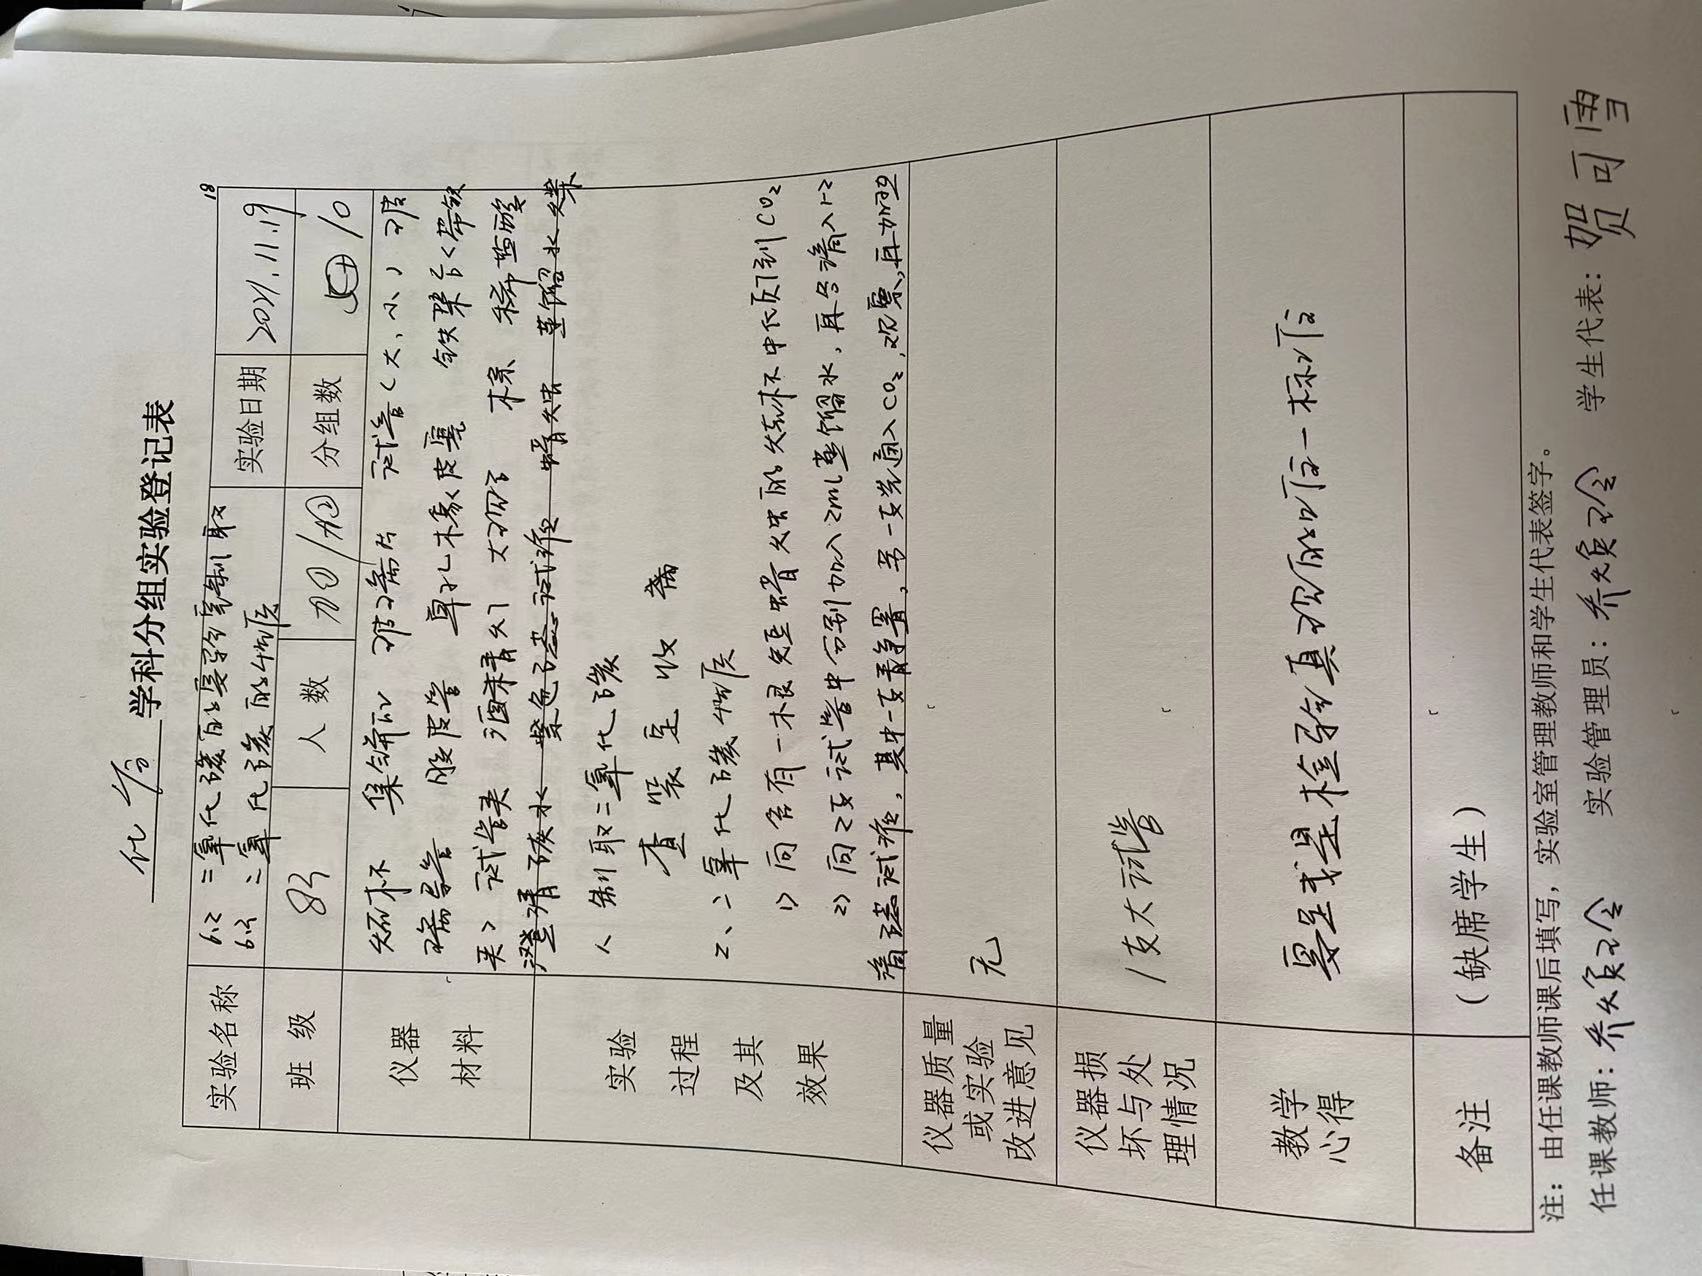 化学 学科分组实验登记表
18
实验名称 6.2 二氧化碳的实验室制取 实验日期 2021.11.19
6.3 二氧化碳的性质
班 级 83 人 数 分组数 10
仪器 烧杯 集气瓶 玻璃片 试管(大、小) 玻
材料 璃导管 胶皮管 单孔橡皮塞 铁架台(带铁
夹) 试管夹 酒精灯 大理石 木条 稀盐酸
澄清石灰水 紫色石蕊试液 蜡烛 蒸馏水 火柴
实验 1、制取二氧化碳
过程 查 装 定 收 离
及其 2、二氧化碳性质
效果 1) 向含有一根短蜡烛的烧杯中倾倒CO₂
2) 向2支试管中分别加入2mL蒸馏水,再各滴入1-2
滴石蕊试液,其中一支静置,另一支先通入CO₂,观察,再加热
仪器质量 无
或实验
改进意见
仪器损 1支大试管
坏与处
理情况
教学 实践是检验真理的唯一标准
心得
备注 (缺席学生)
注:由任课教师课后填写,实验室管理教师和学生代表签字。
任课教师: 实验管理员: 学生代表:贺可雪